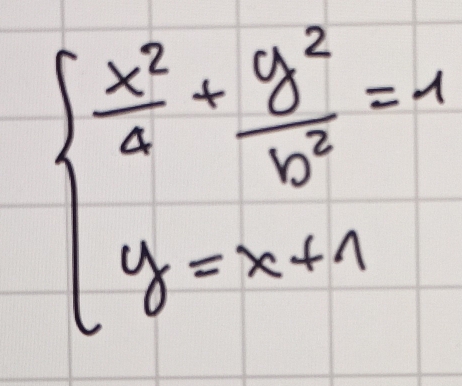 { x²/4 + y²/b² = 1
y = x + 1